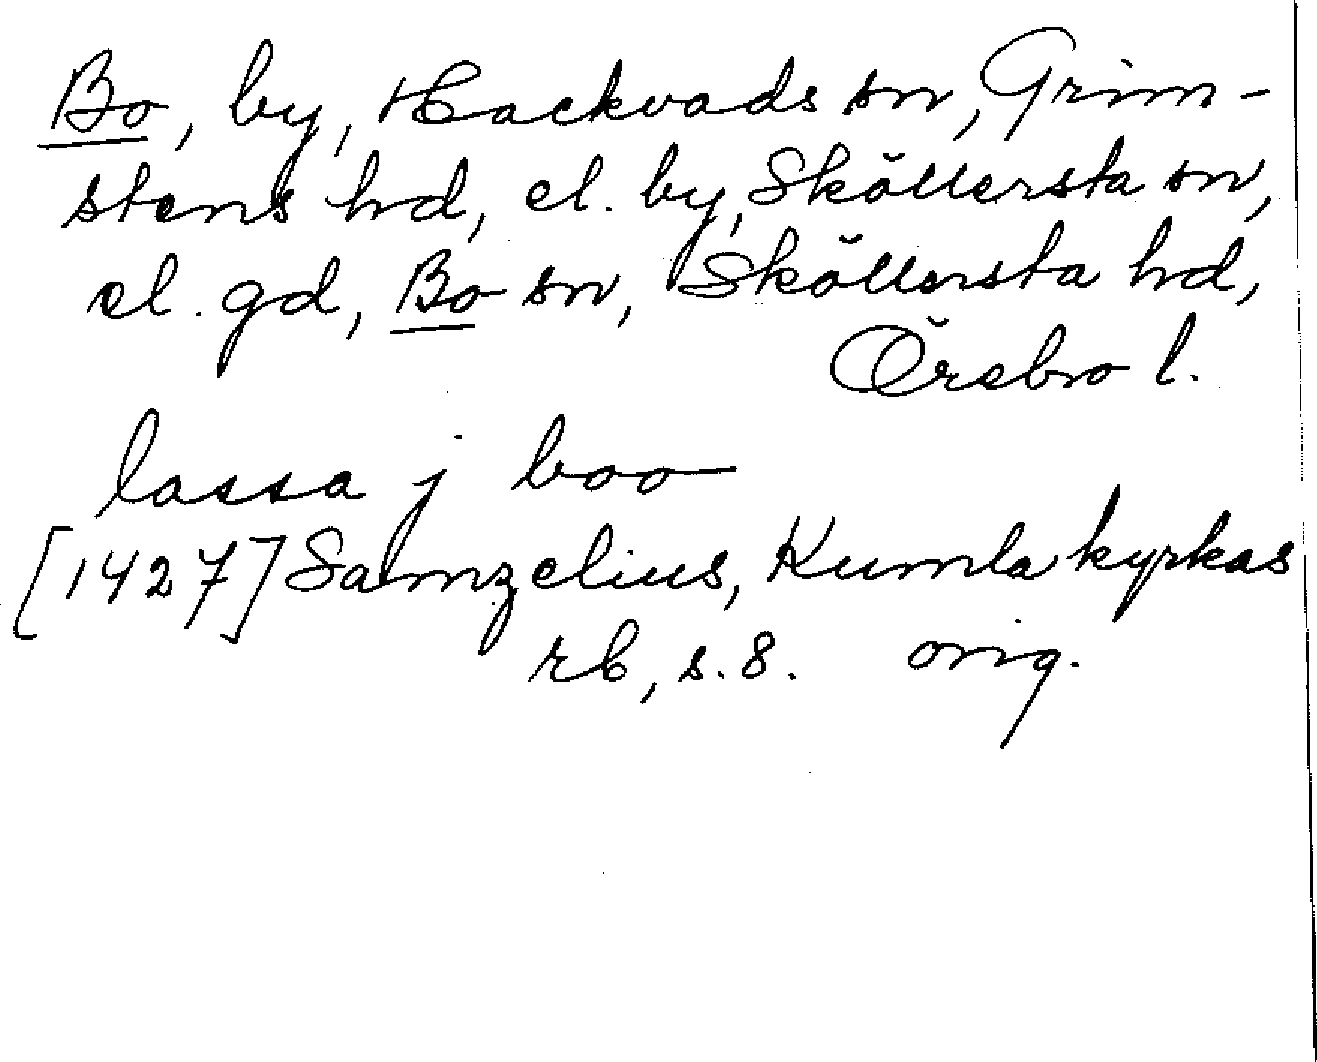 Bo, by, Hackvads sn, Grim-
stens hd, el. by, Sköllersta sn,
el. gd, Bo sn, Sköllersta hd,
Örebro l.
lassa j boo
[1427] Samzelius, Kumla kyrkas
rb, s. 8. orig.